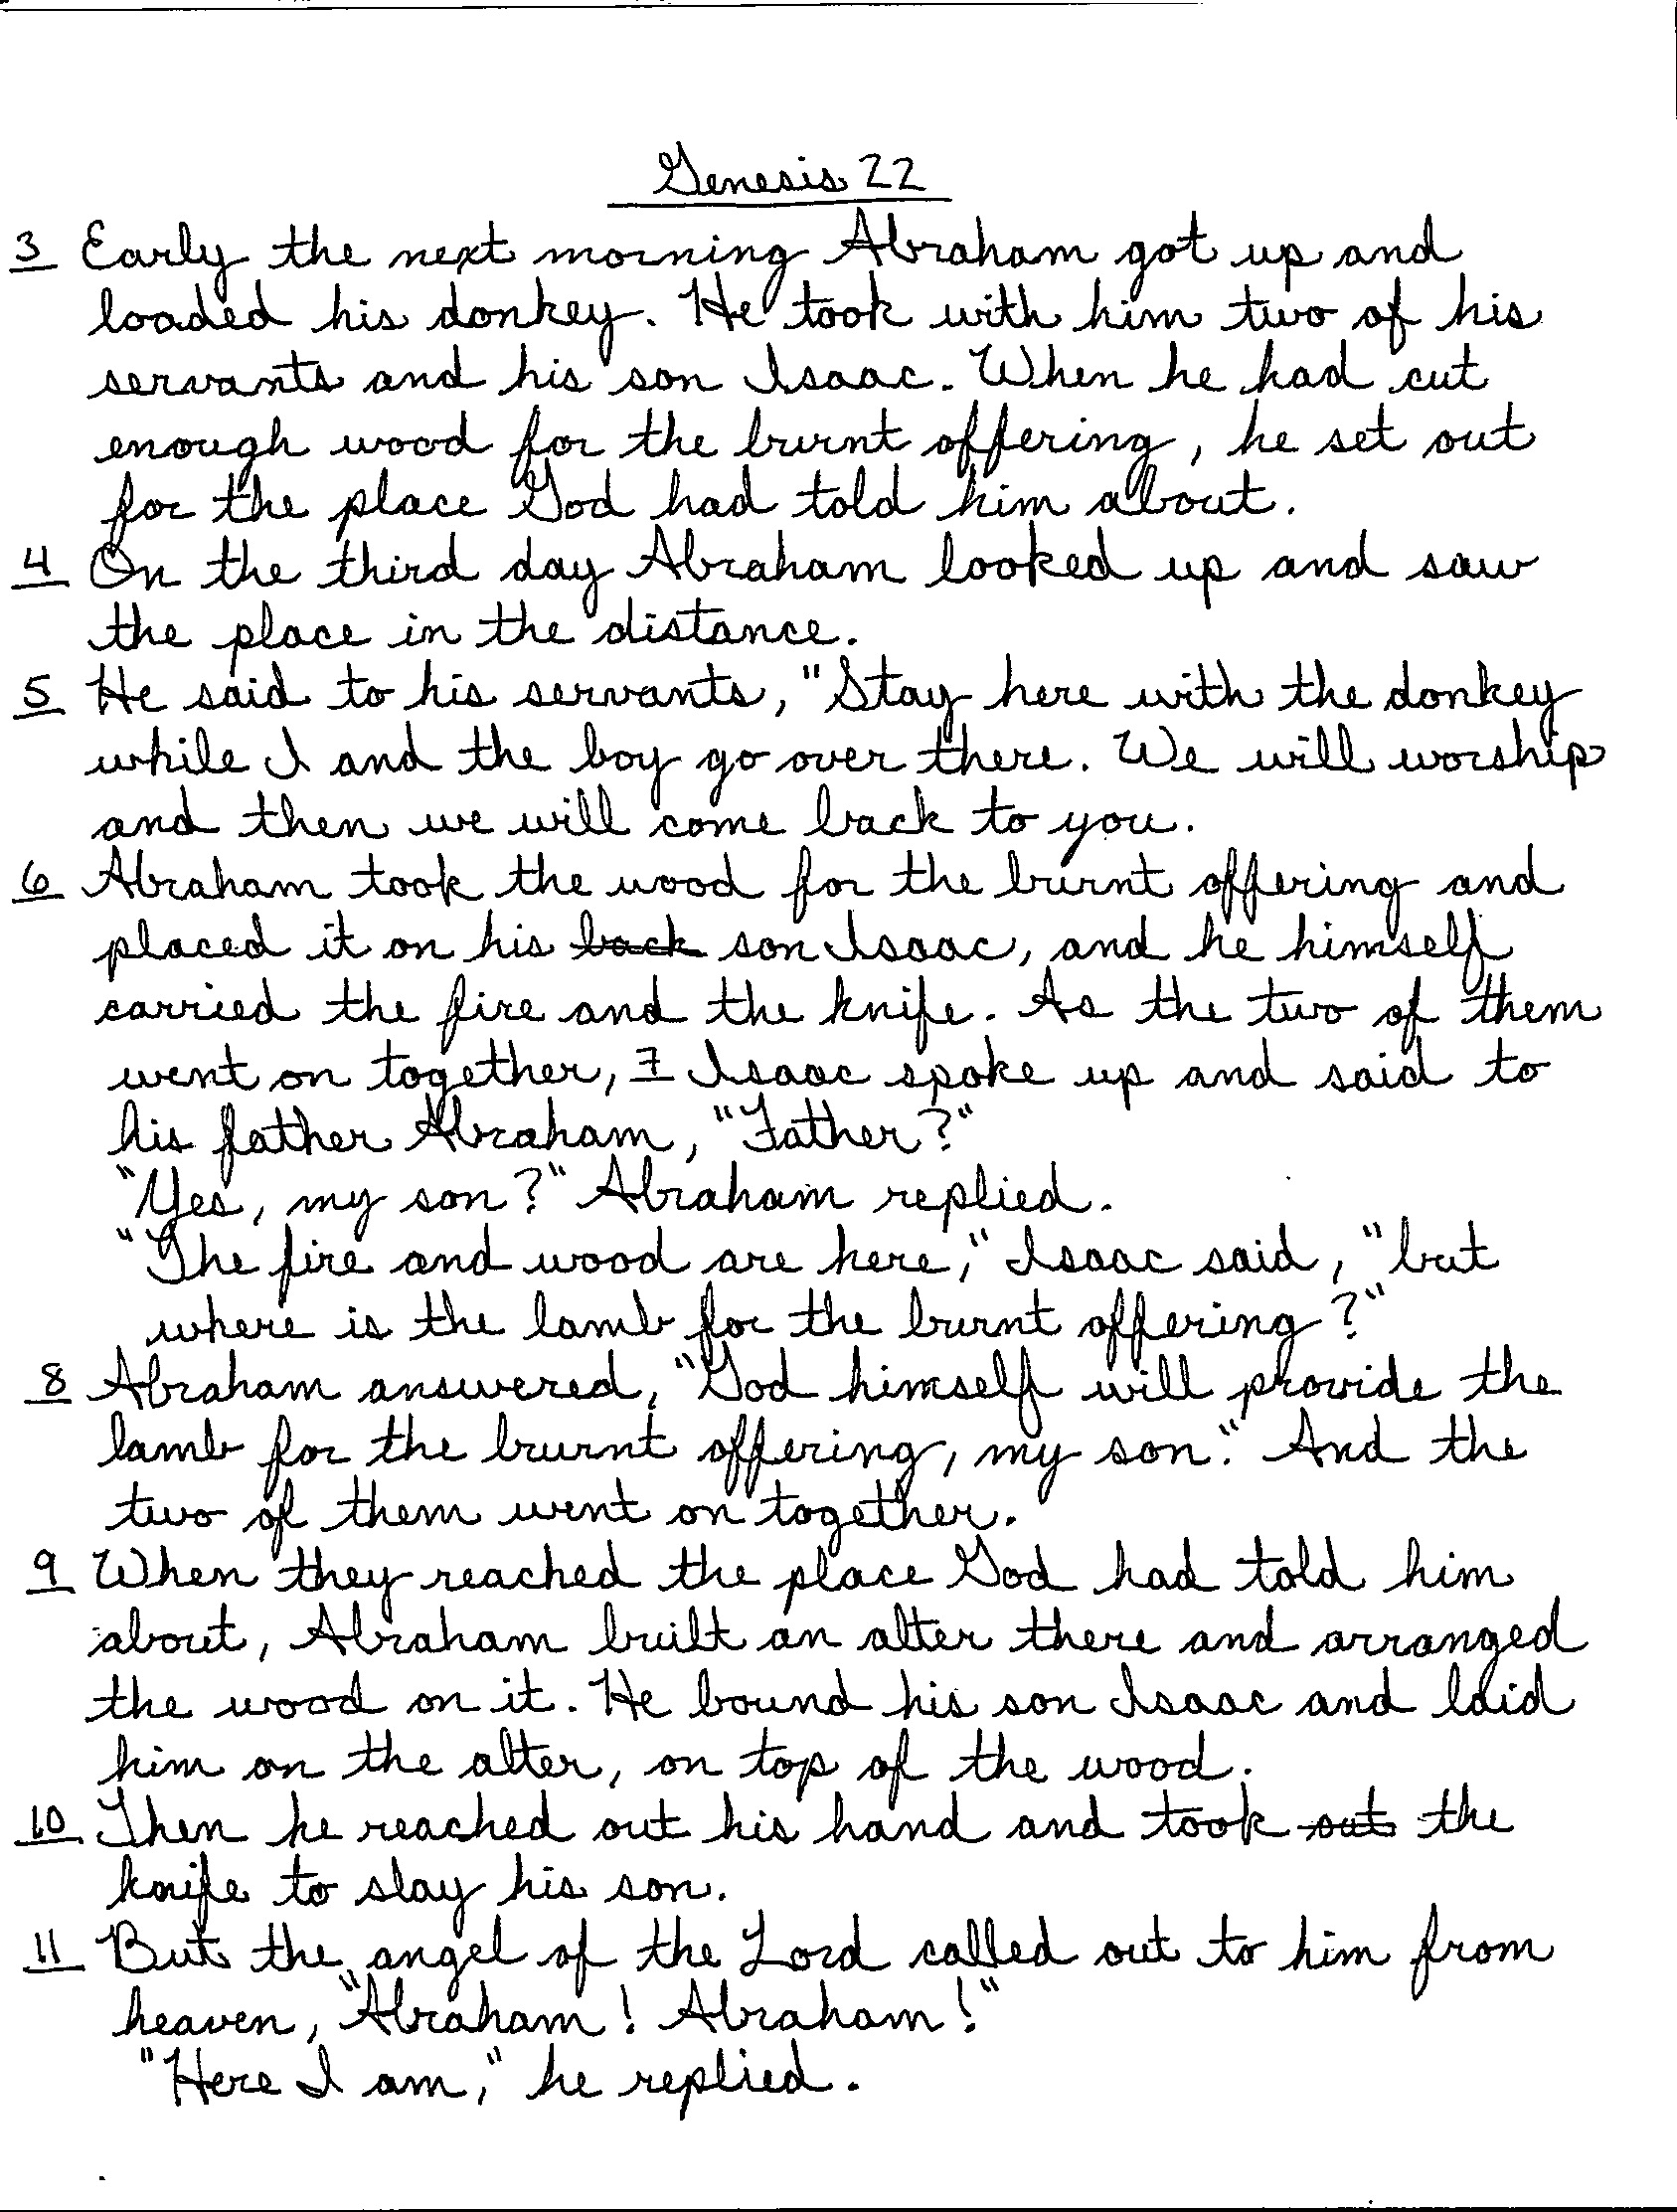 Genesis 22
3 Early the next morning Abraham got up and
loaded his donkey. He took with him two of his
servants and his son Isaac. When he had cut
enough wood for the burnt offering, he set out
for the place God had told him about.
4 On the third day Abraham looked up and saw
the place in the distance.
5 He said to his servants, "Stay here with the donkey
while I and the boy go over there. We will worship
and then we will come back to you.
6 Abraham took the wood for the burnt offering and
placed it on his back son Isaac, and he himself
carried the fire and the knife. As the two of them
went on together, 7 Isaac spoke up and said to
his father Abraham, "Father?"
"Yes, my son?" Abraham replied.
"The fire and wood are here," Isaac said, "but
where is the lamb for the burnt offering?"
8 Abraham answered, "God himself will provide the
lamb for the burnt offering, my son." And the
two of them went on together.
9 When they reached the place God had told him
about, Abraham built an alter there and arranged
the wood on it. He bound his son Isaac and laid
him on the alter, on top of the wood.
10 Then he reached out his hand and took out the
knife to slay his son.
11 But the angel of the Lord called out to him from
heaven, "Abraham! Abraham!"
"Here I am," he replied.